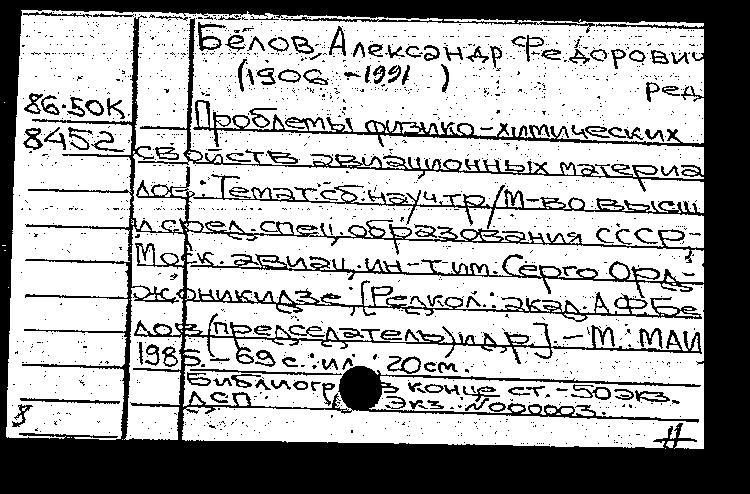 Белов, Александр Федорович
(1906 - 1991) ред.
86-50К
8452
Проблемы физико-химических
свойств авиационных материа
лов: Темат. сб. науч. тр./М-во высш.
и сред. спец. образования СССР,
Моск. авиац. ин-т им. Серго Орд-
жоникидзе; [Редкол.: акад. А.Ф.Бе
лов (председатель) и др.]. - М.: МАИ
1985. - 69 с.: ил.; 20 см.
Библиогр. в конце ст. - 50 экз.
ДСП Экз. N000003.
8
11